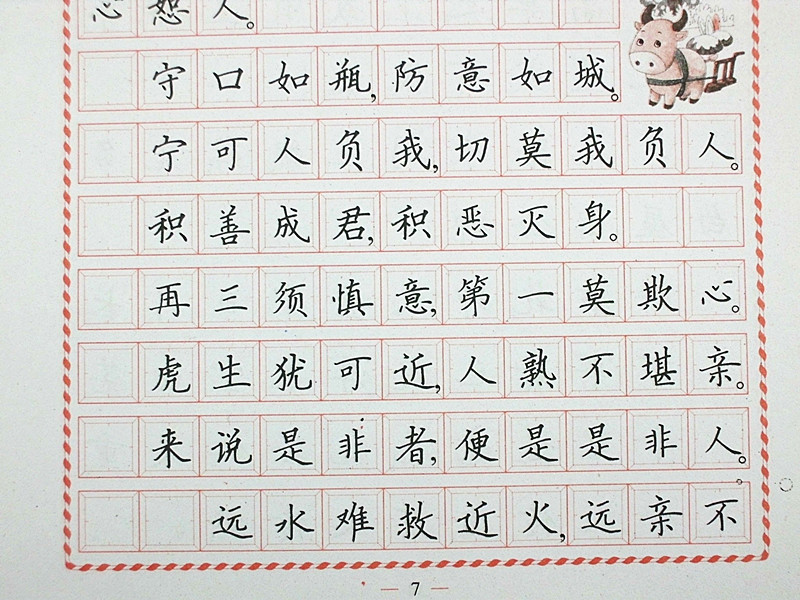 心恕人。
守口如瓶,防意如城。
宁可人负我,切莫我负人。
积善成君,积恶灭身。
再三须慎意,第一莫欺心。
虎生犹可近,人熟不堪亲。
来说是非者,便是是非人。
远水难救近火,远亲不
7